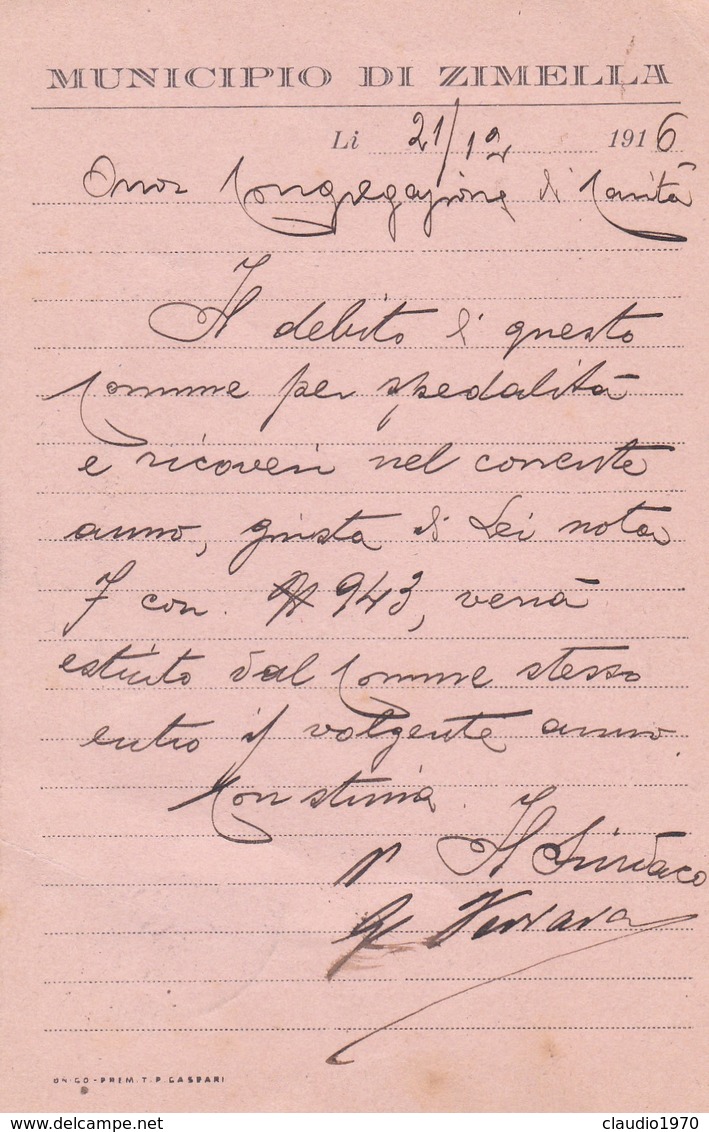 MUNICIPIO DI ZIMELLA
Li 21/12 1916
Onor Congregazione di Carità
Il debito di questo
Comune per spedalità
e ricoveri nel corrente
anno, giusta di Lei nota
7 corr. 943, verrà
estinto dal Comune stesso
entro il volgente anno.
Con stima.
p Il Sindaco
G Ferrara
ON. CO - PREM. T. P. GASPARI
claudio1970